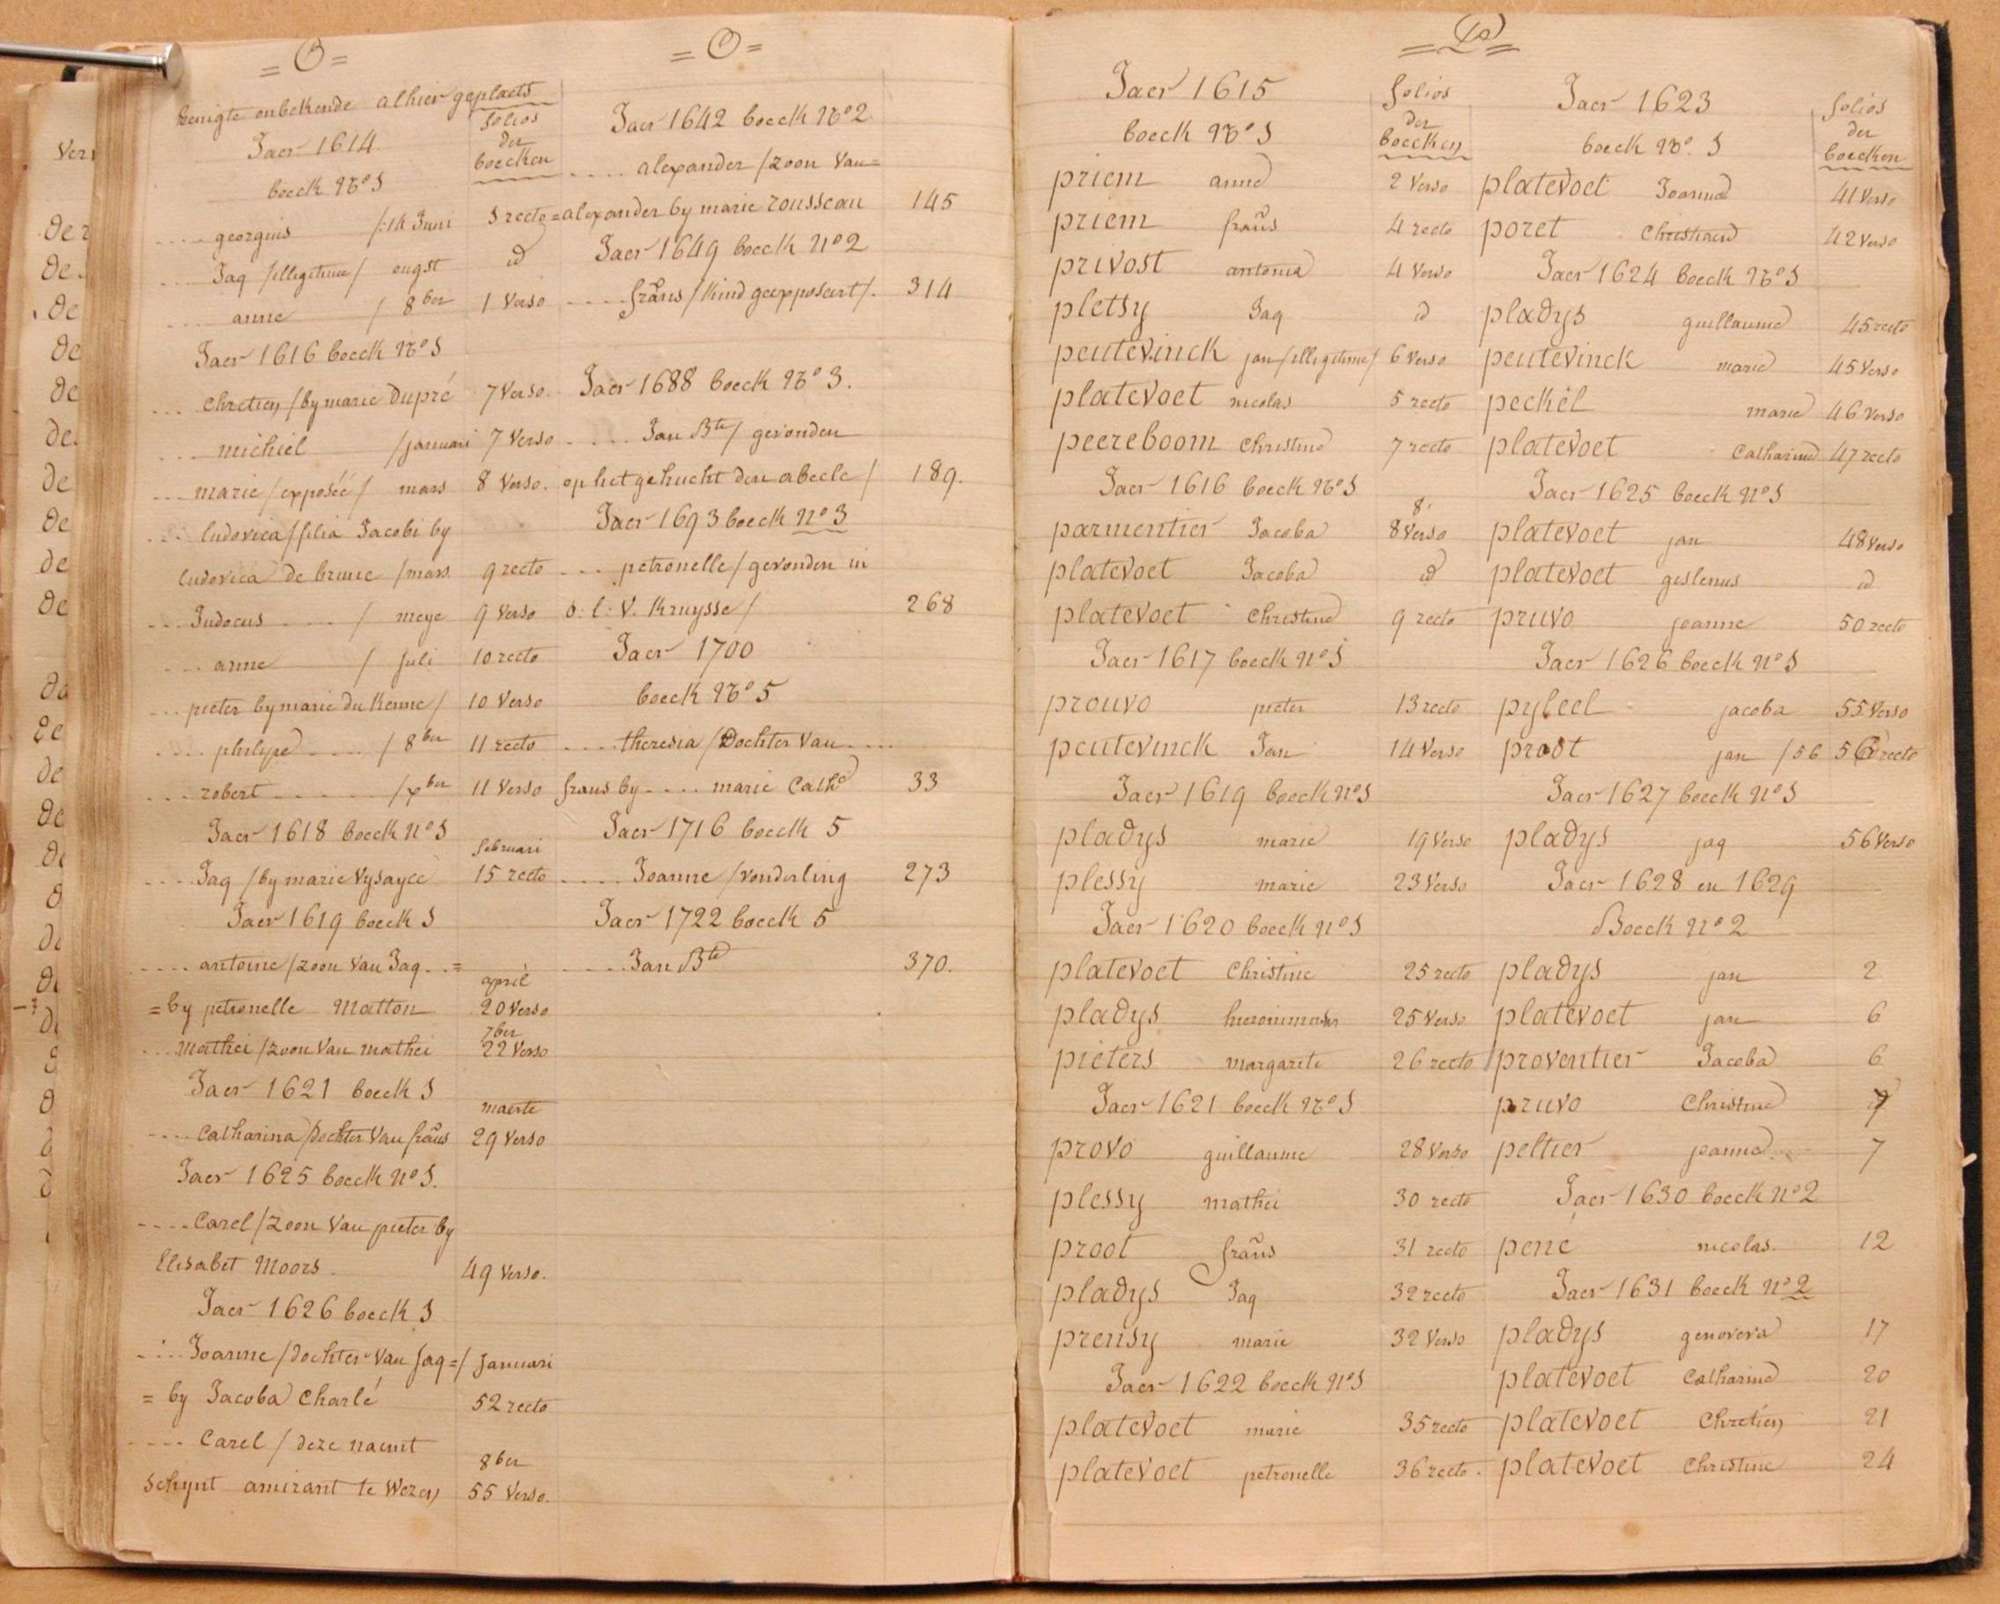 = O =
Eenigte onbekende alhier geplaets
Jaer 1614
folios
der
boecken
boeck No 1
.... georgius /: 14 Juni 1 recto
... Jaq /illegitime/ ougst id
... anne / 8ber 1 Verso
Jaer 1616 boeck No 1
... Chretien / by marie Dupré 7 Verso.
... michiel / januari 7 Verso
... marie / exposéé / mars 8 Verso.
... ludovica / filia Jacobi by
ludovica de brune / mars 9 recto
... Judocus .... / meye 9 Verso
... anne / Juli 10 recto
... pieter by marie du Kenne / 10 Verso
.... philype .... / 8ber 11 recto
... robert ...... / xber 11 Verso
Jaer 1618 boeck No 1
februari
.... Jaq / by marie Vysayce 15 recto
Jaer 1619 boeck 1
..... antoine / zoon Van Jaq.. =
april
= by petronelle Matton 20 Verso
7ber
... Mathei / zoon Van mathei 22 Verso
Jaer 1621 boeck 1
maerte
.... Catharina / Dochter Van frans 29 Verso
Jaer 1625 boeck No 1.
.... Carel / zoon Van pieter by
Elisabet Moors. 49 Verso.
Jaer 1626 boeck 1
..... Joanne / dochter Van Jaq = / Januari
= by Jacoba Charlé 52 recto
.... Carel / deze naemt
8ber
schynt amirant te Wezen 55 Verso.
= O =
Jaer 1642 boeck No 2
.... alexander / zoon Van =
= alexander by marie rousseau 145
Jaer 1649 boeck No 2
..... frans / Kind geexposeert /. 314
Jaer 1688 boeck No 3.
..... Jan Bte / gevonden
op het gehucht den abeele / 189.
Jaer 1693 boeck No 3
... petronelle / gevonden in
o: l: V. Kruysse / 268
Jaer 1700
boeck No 5
.... theresia / Dochter Van ....
frans by .... marie Cathe 33
Jaer 1716 boeck 5
.... Joanne / vonderling 273
Jaer 1722 boeck 5
.... Jan Bte 370.
= P =
Jaer 1615
folios
der
boecken
boeck No 1
priem anne 2 Verso
priem frans 4 recto
privost antonia 4 Verso
pletsy Jaq id
peutevinck jan / illegitime / 6 Verso
platevoet nicolas 5 recto
peereboom Christine 7 recto
Jaer 1616 boeck No 1
8.
parmentier Jacoba 8 Verso
platevoet Jacoba id
platevoet Christine 9 recto
Jaer 1617 boeck No 1
prouvo pieter 13 recto
peutevinck Jan 14 Verso
Jaer 1619 boeck No 1
pladys marie 19 Verso
plessy marie 23 Verso
Jaer 1620 boeck No 1
platevoet Christine 25 recto
pladys hieronimus 25 Verso
pieters margarite 26 recto
Jaer 1621 boeck No 1
provo guillaume 28 Verso
plessy mathei 30 recto
proot frans 31 recto
pladys Jaq 32 recto
prensy marie 32 Verso
Jaer 1622 boeck No 1
platevoet marie 35 recto
platevoet petronelle 36 recto.
Jaer 1623
folios
der
boecken
boeck No. 1
platevoet Joanna 41 Verso
poret Christiaen 42 Verso
Jaer 1624 boeck No 1
pladys guillaume 45 recto
peutevinck marie 45 Verso
peckel marie 46 Verso
platevoet Catharine 47 recto
Jaer 1625 boeck No 1
platevoet jan 48 Verso
platevoet gislenus id
pruvo joanne 50 recto
Jaer 1626 boeck No 1
pybeel jacoba 55 Verso
proot jan / 56 56 recto
Jaer 1627 boeck No 1
pladys jaq 56 Verso
Jaer 1628 en 1629
Boeck No 2
pladys jan 2
platevoet jan 6
proventier Jacoba 6
pruvo Christine
peltier joanna 7
Jaer 1630 boeck No 2
pene nicolas. 12
Jaer 1631 boeck No 2
pladys genoveva 17
platevoet Catharine 20
platevoet Chretien 21
platevoet Christine 24